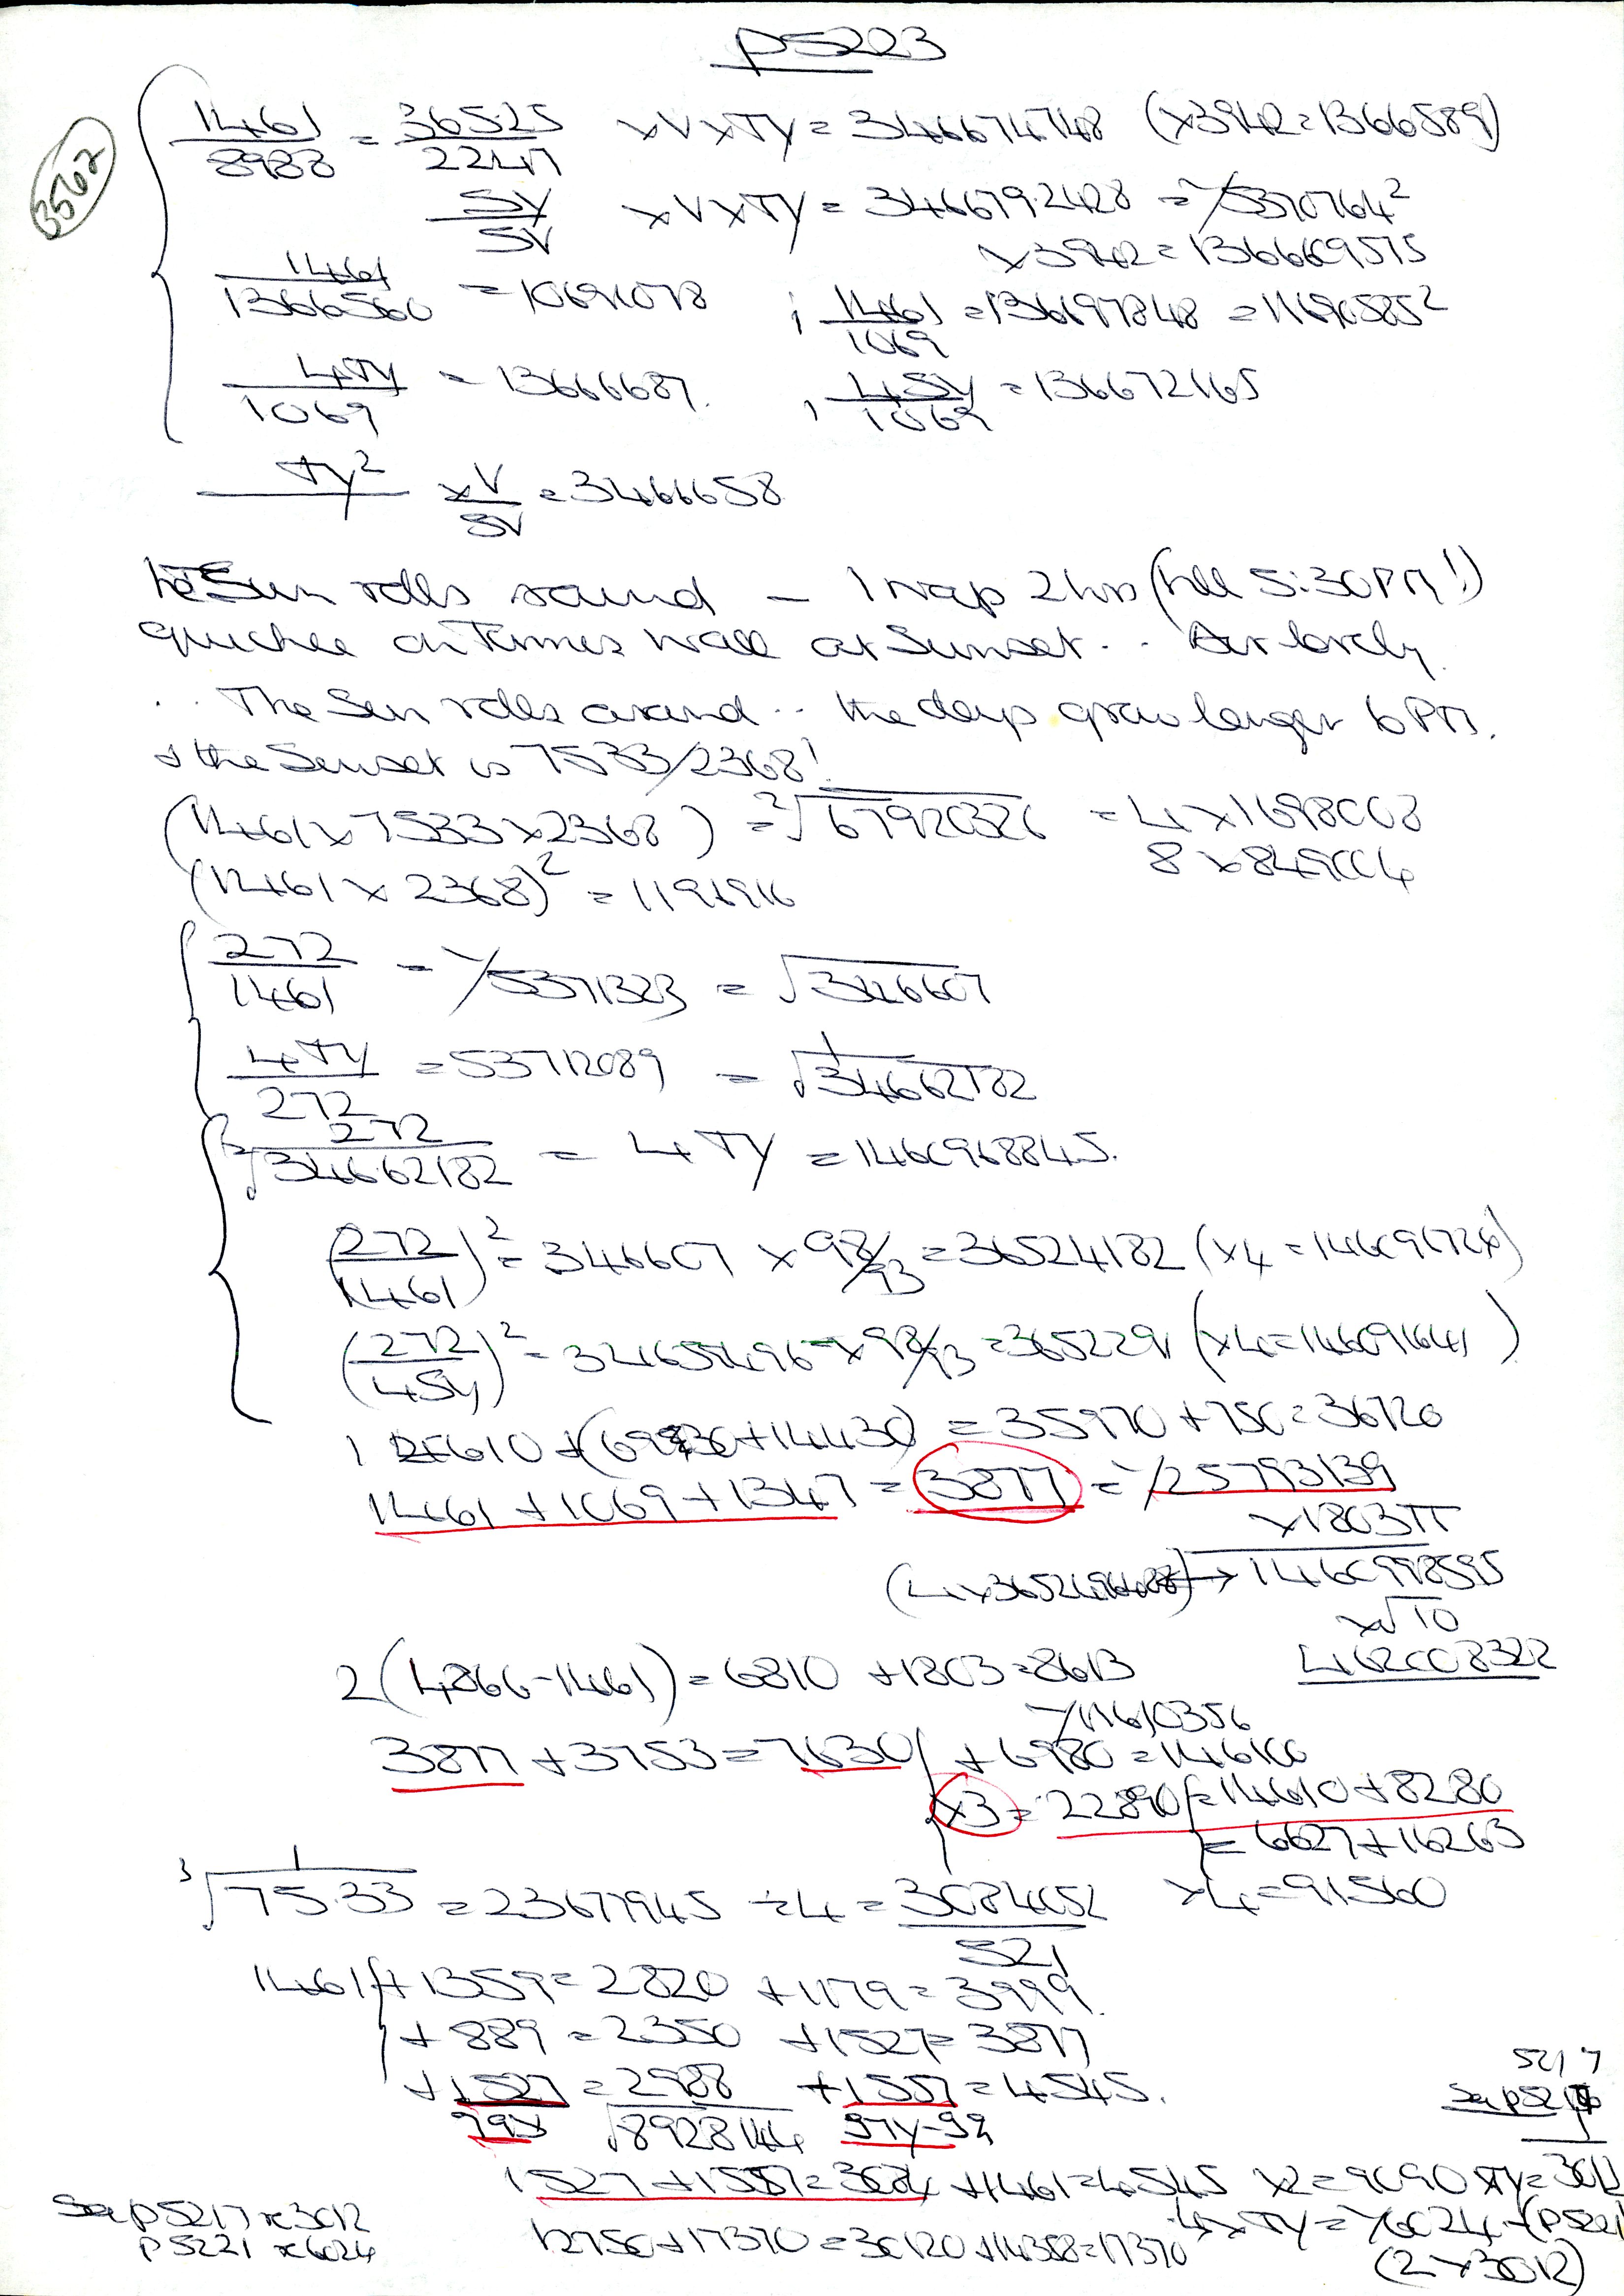 p5223
3562
1461/8988 = 36525/22471 × V × TY = 346674748 (×3942 = 1366589)
SY/SV × V × TY = 346679.2428 = 1/5370764²
×3942 = 136669515
1461/1366560 = 10691078 ; 1461/1069 = 136697848 = 11690585²
4TY/1069 = 13666687. , 4SY/1069 = 136672165
TY² × V/SV = 3466658
The Sun rolls round — I nap 2 hrs (till 5:30PM!)
quickee on Tennis wall at Sunset.. Air lovely.
.. The Sun rolls around.. the days grow longer 6PM.
& the Sunset is 7533/2368!
(1461×7533×2368) = ²√67920326 = 4×1698008
8×849004
(1461×2368)² = 1196916
272/1461 = 1/5371323 = √346607
4TY/272 = 53712089 = 1/√34662182
272/²√34662182 = 4TY = 1460968845.
(272/1461)² = 346607 × 98/93 = 36524182 (×4 = 146096724)
(272/4SY)² = 34659496 × 98/93 = 365229 (×4 = 146091641)
14610 + (6930 + 14430) = 35970 + 750 = 36720
1461 + 1069 + 1347 = 3877 = 1/25793139
×1803π
→ 1460998595
×√10
462008322
2(4866-1461) = 6810 + 1803 = 8613
1/11610356
3877 + 3753 = 7630 + 6980 = 146100
×3 = 22890 = 14610 + 8280
= 6627 + 16263
³√1/75.33 = 23677945 ÷4 = 3084052/521 ×4 = 91560
1461 + 1359 = 2820 + 1179 = 3999.
+ 889 = 2350 + 1527 = 3877
+ 1527 = 2988 + 1557 = 4545.
√8928144
5217
1527 + 1557 = 3084 + 1461 = 4545 ×2 = 9090 × TY = 3012
See p5217 x3012
p5221 x6024
12750 + 17370 = 30120 + 14388 = 17370
4 × TY = 1/6024 (P5221)
(2×3012)